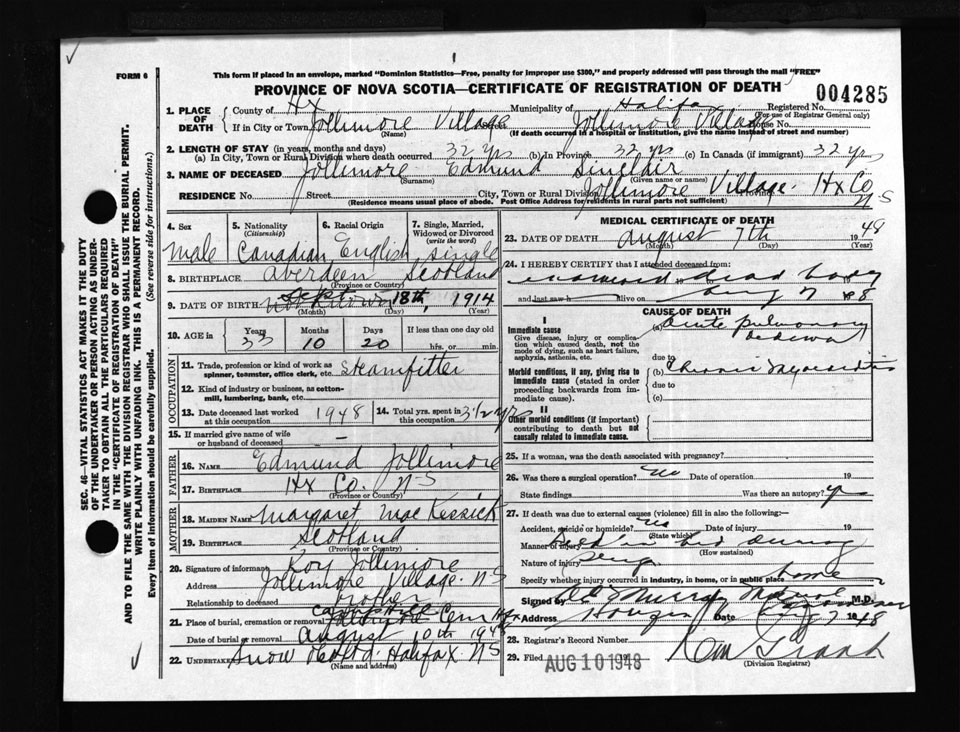 FORM 6
This form if placed in an envelope, marked "Dominion Statistics—Free, penalty for improper use $300," and properly addressed will pass through the mail "FREE"
PROVINCE OF NOVA SCOTIA—CERTIFICATE OF REGISTRATION OF DEATH
004285
1. PLACE OF DEATH
County of Hx Municipality of Halifax Registered No.
(For use of Registrar General only)
If in City or Town Jollimore Village Street Jollimore Village House No.
(Name) (If death occurred in a hospital or institution, give the name instead of street and number)
2. LENGTH OF STAY (in years, months and days)
(a) In City, Town or Rural Division where death occurred 32 yrs (b) In Province 32 yrs (c) In Canada (if immigrant) 32 yrs
3. NAME OF DECEASED Jollimore Edmund Sinclair
(Surname) (Given name or names)
RESIDENCE No. Street City, Town or Rural Division Jollimore Village Hx Co N-S Province
(Residence means usual place of abode. Post Office Address for residents in rural parts not sufficient)
4. Sex Male
5. Nationality (Citizenship) Canadian
6. Racial Origin English
7. Single, Married, Widowed or Divorced (write the word) Single
8. BIRTHPLACE Aberdeen Scotland
(Province or Country)
9. DATE OF BIRTH Sept 18th, 1914
(Month) (Day) (Year)
10. AGE in Years 33 Months 10 Days 20 If less than one day old hrs. or min.
OCCUPATION
11. Trade, profession or kind of work as spinner, teamster, office clerk, etc. Steamfitter
12. Kind of industry or business, as cotton-mill, lumbering, bank, etc.
13. Date deceased last worked at this occupation 1948
14. Total yrs. spent in this occupation 3 1/2 yrs
15. If married give name of wife or husband of deceased —
FATHER
16. NAME Edmund Jollimore
17. BIRTHPLACE Hx Co. N-S
(Province or Country)
MOTHER
18. MAIDEN NAME Margaret MacKessick
19. BIRTHPLACE Scotland
(Province or Country)
20. Signature of informant Roy Jollimore
Address Jollimore Village N S
Relationship to deceased brother
21. Place of burial, cremation or removal Cem Hfx
Date of burial or removal August 10th 1948
22. UNDERTAKER Snow & Co Ltd. Halifax N S
(Name and address)
MEDICAL CERTIFICATE OF DEATH
23. DATE OF DEATH August 7th 1948
(Month) (Day) (Year)
24. I HEREBY CERTIFY that I attended deceased from:
dead body
and last saw h alive on Aug 7 1948
CAUSE OF DEATH
I
Immediate cause
Give disease, injury or complication which caused death, not the mode of dying, such as heart failure, asphyxia, asthenia, etc.
(a) Acute pulmonary oedema
due to
Morbid conditions, if any, giving rise to immediate cause (stated in order proceeding backwards from immediate cause).
(b) Chronic Myocarditis
due to
(c)
II
Other morbid conditions (if important) contributing to death but not causally related to immediate cause.
25. If a woman, was the death associated with pregnancy?
26. Was there a surgical operation? No Date of operation 19
State findings Was there an autopsy?
27. If death was due to external causes (violence) fill in also the following:—
Accident, suicide or homicide? No Date of injury 19
(State which)
Manner of injury Died in bed during
(How sustained)
Nature of injury
Specify whether injury occurred in industry, in home, or in public place home
Signed by Murray M.D.
Address Date 7 1948
28. Registrar's Record Number
29. Filed AUG 10 1948 19
(Division Registrar)
SEC. 46—VITAL STATISTICS ACT MAKES IT THE DUTY
OF THE UNDERTAKER OR PERSON ACTING AS UNDER-
TAKER TO OBTAIN ALL THE PARTICULARS REQUIRED
IN THE "CERTIFICATE OF REGISTRATION OF DEATH"
AND TO FILE THE SAME WITH THE DIVISION REGISTRAR WHO SHALL ISSUE THE BURIAL PERMIT.
WRITE PLAINLY WITH UNFADING INK. THIS IS A PERMANENT RECORD.
Every item of information should be carefully supplied. (See reverse side for instructions.)